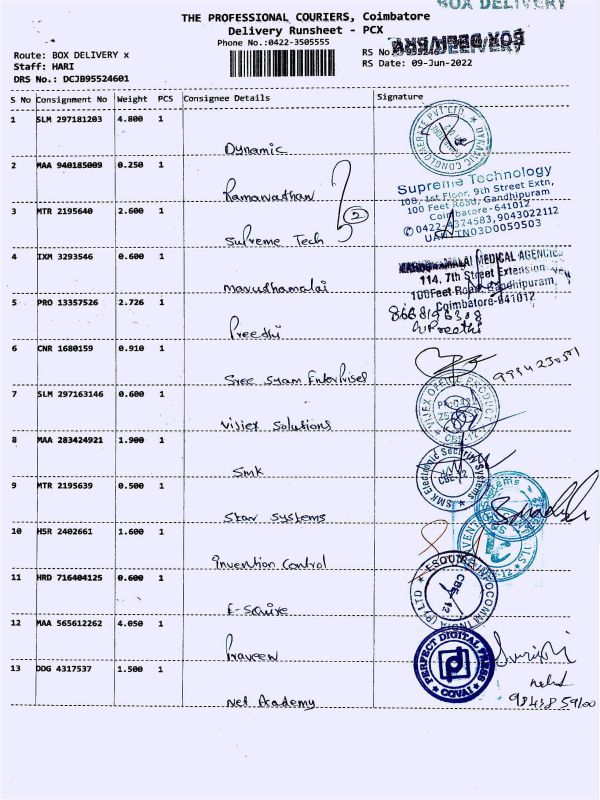 BOX DELIVERY
THE PROFESSIONAL COURIERS, Coimbatore
Delivery Runsheet - PCX
Phone No.:0422-3505555
BOX DELIVERY
Route: BOX DELIVERY x
Staff: HARI
DRS No.: DCJB95524601
RS No.
RS Date: 09-Jun-2022
S No Consignment No Weight PCS Consignee Details Signature
1 SLM 297181203 4.800 1
Dynamic
DYNAMIC CONGLOMERATE PVT LTD
2 MAA 940185009 0.250 1
Ramanathan
3 MTR 2195640 2.600 1
Supreme Tech
2
Supreme Technology
108, 1st Floor, 9th Street Extn,
100 Feet Road, Gandhipuram,
Coimbatore-641012
0422-4374583,9043022112
UAN TN03D0050503
4 IXM 3293546 0.600 1
Marudhamalai
MEDICAL AGENCIES
114, 7th Street Extension
100Feet Road, Gandhipuram,
Coimbatore-641012
5 PRO 13357526 2.726 1
Preethi
Preethi
6 CNR 1680159 0.910 1
Sree Syam Enterprises
7 SLM 297163146 0.600 1
Vijjex Solutions
VIJJEX OFFICE PRODUCT
CBE-12
8 MAA 283424921 1.900 1
SMK
SMK Electronic Security Systems
CBE-12
9 MTR 2195639 0.500 1
Star Systems
10 HSR 2402661 1.600 1
Invention Control
11 HRD 716404125 0.600 1
E-Squire
ESQUIRE INFOCOMM INDIA (P) LTD
CBE 12
12 MAA 565612262 4.050 1
Praveen
PERFECT DIGITAL PRESS
COVAI
13 DDG 4317537 1.500 1
Net Academy